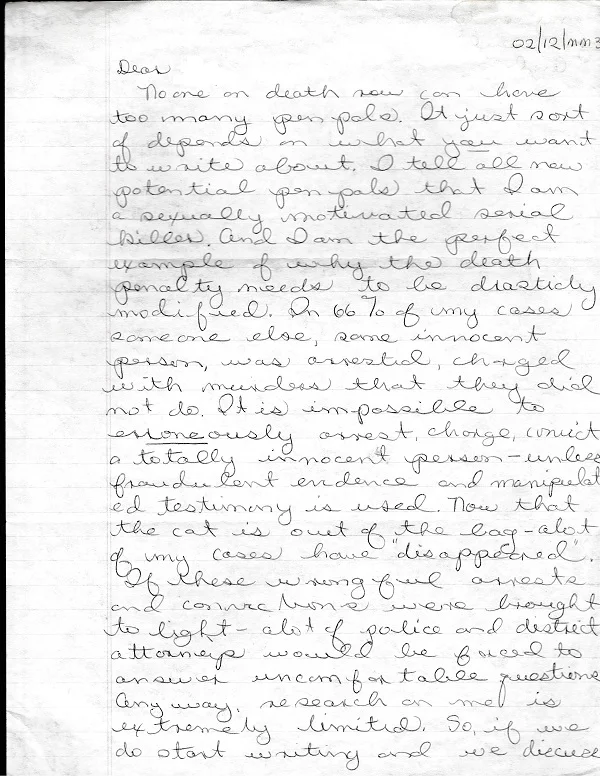 02/12/mm3
Dear
No one on death row can have
too many pen pals. It just sort
of depends on what you want
to write about. I tell all new
potential pen pals that I am
a sexually motivated serial
killer. And I am the perfect
example of why the death
penalty needs to be drasticly
modified. In 66% of my cases
someone else, some innocent
person, was arrested, charged
with murders that they did
not do. It is impossible to
erroneously arrest, charge, convict
a totally innocent person-unless
fraudulent evidence and manipulat
ed testimony is used. Now that
the cat is out of "the bag-alot
of my cases have "disappeared".
If these wrongful arrests
and convictions were brought
to light-alot of police and district
attorneys would be forced to
answer uncomfortable questions
Anyway, research on me is
extremely limited. So, if we
do start writing and we discuss